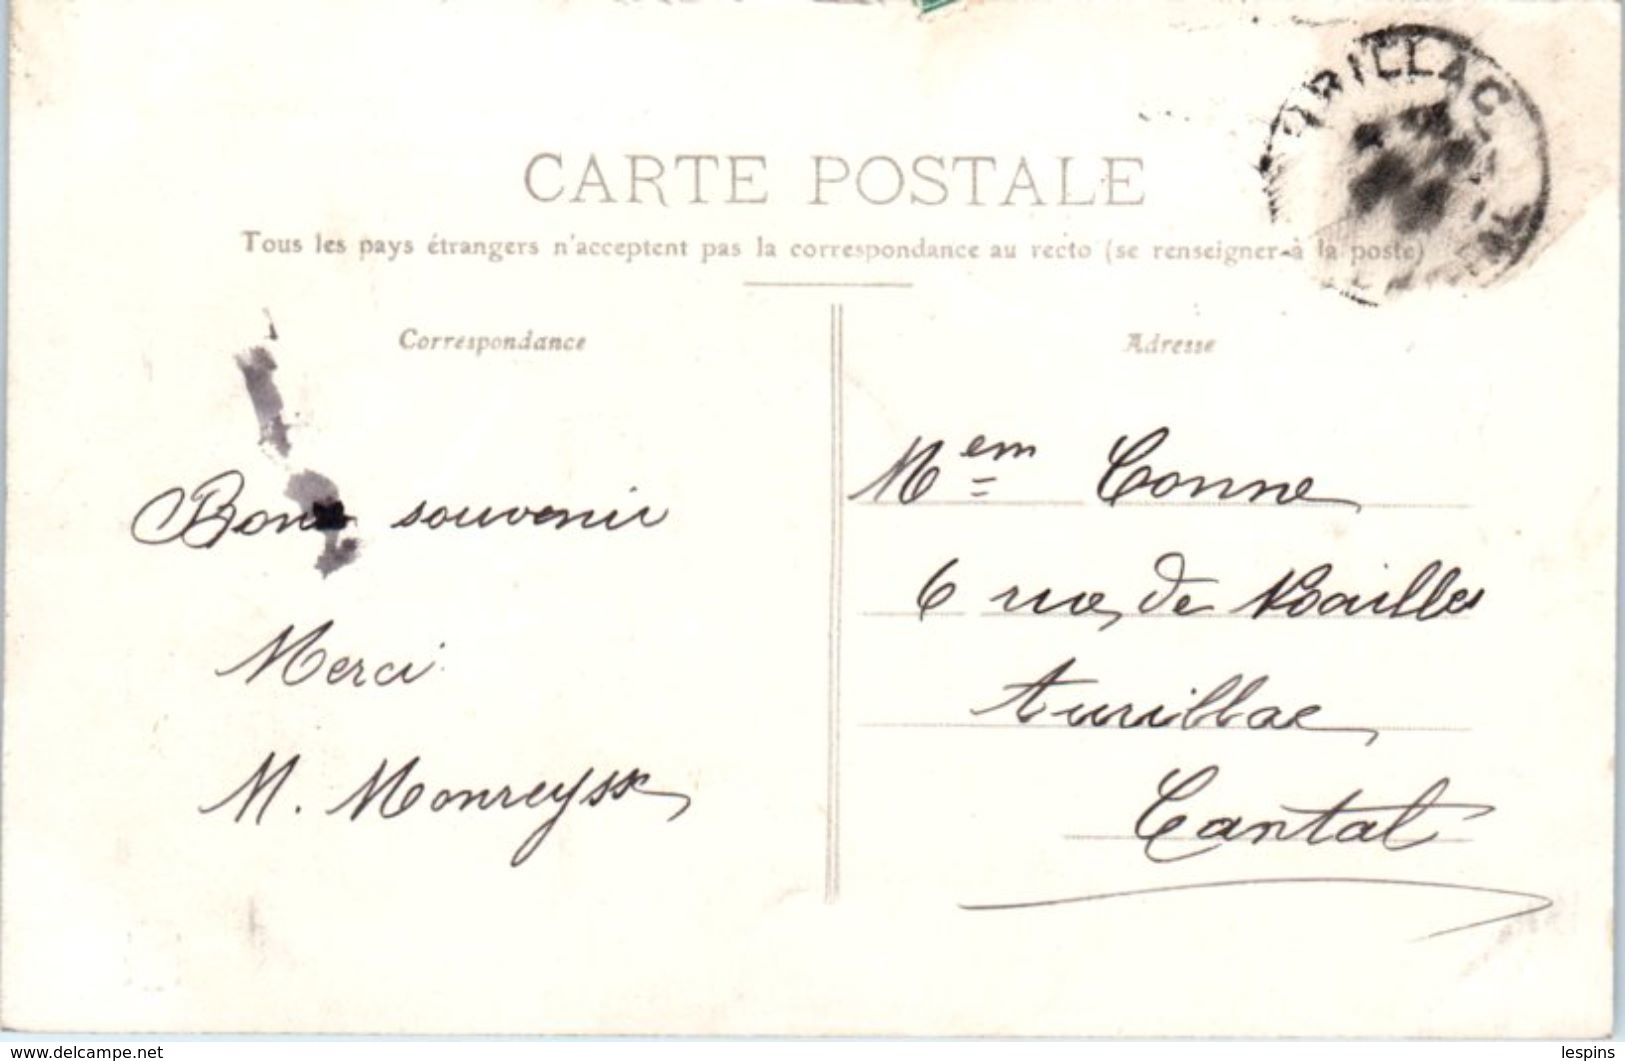 AURILLAC
CARTE POSTALE
Tous les pays étrangers n'acceptent pas la correspondance au recto (se renseigner à la poste)
Correspondance
Bons souvenir
Merci
M. Monreysse
Adresse
Mem Conne
6 rue de Noailles
Aurillac
Cantal
www.delcampe.net
lespins